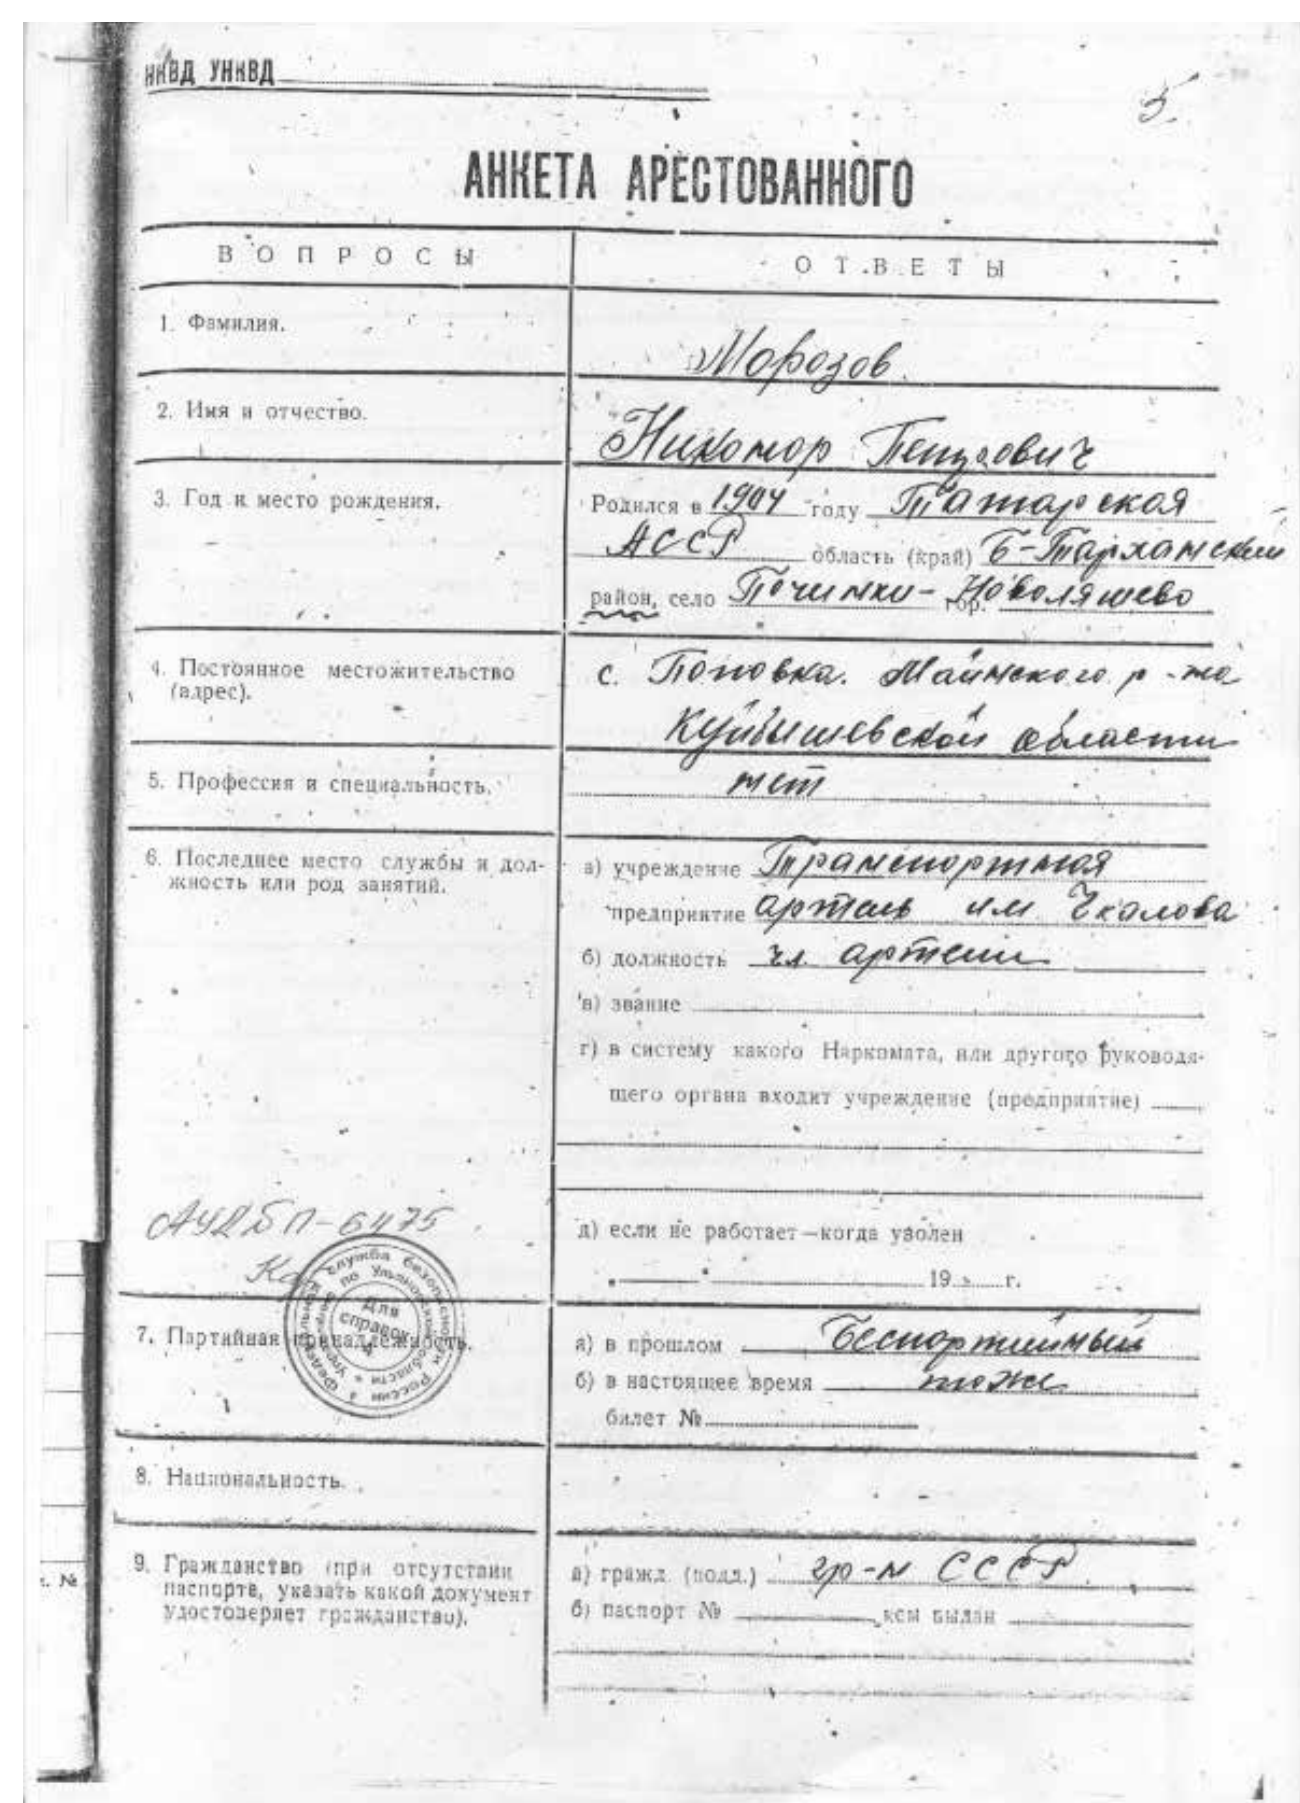 НКВД УНКВД
5.
АНКЕТА АРЕСТОВАННОГО
ВОПРОСЫ
ОТВЕТЫ
1. Фамилия.
Морозов.
2. Имя и отчество.
Никонор Петрович
3. Год и место рождения.
Родился в 1904 году Татарская
АССР область (край) Б-Тарханский
район, село Починки- гор. Новоляшево
4. Постоянное местожительство
(адрес).
с. Поповка. Майнского р-на
Куйбышевской области
5. Профессия и специальность.
нет
6. Последнее место службы и дол-
жность или род занятий.
а) учреждение Транспортная
предприятие артель им Чкалова
б) должность чл. артели
в) звание
г) в систему какого Наркомата, или другого руководя-
щего органа входит учреждение (предприятие)
д) если не работает—когда уволен
" " 19 г.
АУДБП-6475
Федеральная служба безопасности России
Управление по Ульяновской области
Для
справок
4
7. Партийная принадлежность.
а) в прошлом Беспортийный
б) в настоящее время тоже
билет №
8. Национальность.
9. Гражданство (при отсутствии
паспорта, указать какой документ
удостоверяет гражданство).
а) гражд. (подд.) гр-н СССР.
б) паспорт № кем выдан
№